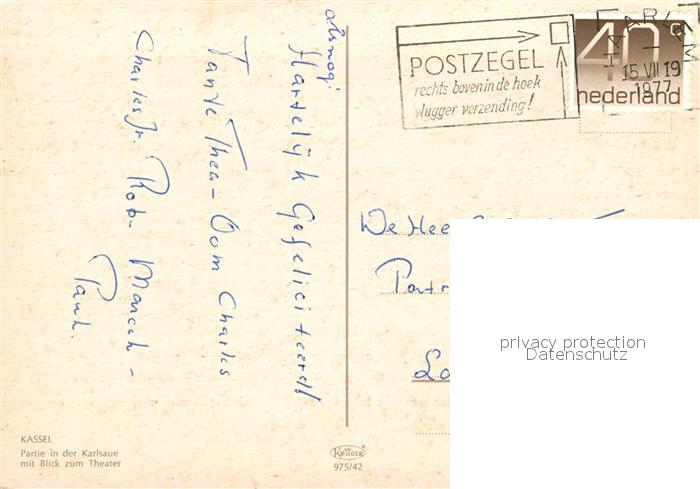 alsnog
Hartelijk Gefeliciteerd!
Tante Thea - Oom Charles
Charles Jr. Rob - Marcel -
Paul.
POSTZEGEL
rechts boven in de hoek
vlugger verzending!
HAARLEM
15 VII 19
1977
40c
nederland
De Hee
privacy protection
Datenschutz
KASSEL
Partie in der Karlsaue
mit Blick zum Theater
KRÜGER
975/42